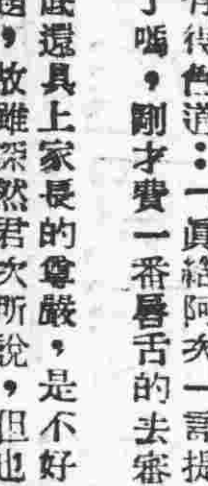 得色道：一眞給阿次一語提
了嗎，剛才費一番唇舌的去審
底還具上家長的尊嚴，是不好
，故雖深然君次所說，但也